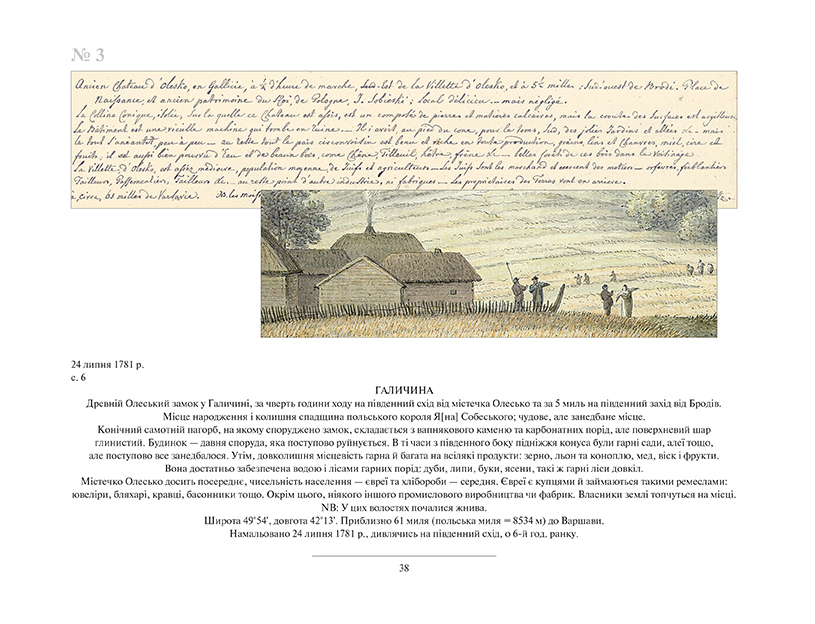 № 3
Ancien Chateau d'Olesko, en Gallicie, à ¼ d'heure de marche, Sud-Est de la Villette d'Olesko, et à 5 milles : Sud-ouest de Brodi. Place de
Naissance, et ancien patrimoine du Roi, de Pologne, J. Sobieski ; local délicieu – mais négligé.
La Colline Conique, isolée, Sur la quelle ce Chateau est assis, est un composé de pierres et matières calcaires, mais la croute des Surfaces est argilleuse.
Le Bâtiment est une vieille machine qui tombe en ruine. – Il i avait au pied du cone, pour la tems, Sud, des jolis Jardins et allées &c – mais
le tout S'anéantit, peu à peu – au reste tout le païs circonvoisin est beau et riche en toute production, grains, lins et Chanvres, miel, cire et
fruits, il est aussi bien pourvu d'eau et de beaux bois, come Chêne, Tilleuil, hêtre, frêne &c – belles forêts de ces bois dans le Voisinage
La Villette d'Olesko, est assez médiocre, population moyenne, de Juifs et agriculteurs – Les Juifs sont les marchand et exercent des metiers – orfevres, ferblantiers
Tailleurs, Passementiers, Tailleurs de – au reste point d'autre industrie, ni fabriques – Les propriétaires des Terres vont en arriere.
circa, 61 milles de Varsavie. NB. les mois
24 липня 1781 р.
с. 6
ГАЛИЧИНА
Древній Олеський замок у Галичині, за чверть години ходу на південний схід від містечка Олесько та за 5 миль на південний захід від Бродів.
Місце народження і колишня спадщина польського короля Я[на] Собеського; чудове, але занедбане місце.
Конічний самотній пагорб, на якому споруджено замок, складається з вапнякового каменю та карбонатних порід, але поверхневий шар
глинистий. Будинок — давня споруда, яка поступово руйнується. В ті часи з південного боку підніжжя конуса були гарні сади, алеї тощо,
але поступово все занедбалося. Утім, довколишня місцевість гарна й багата на всілякі продукти: зерно, льон та коноплю, мед, віск і фрукти.
Вона достатньо забезпечена водою і лісами гарних порід: дуби, липи, буки, ясени, такі ж гарні ліси довкіл.
Містечко Олесько досить посереднє, чисельність населення — євреї та хлібороби — середня. Євреї є купцями й займаються такими ремеслами:
ювеліри, бляхарі, кравці, басонники тощо. Окрім цього, ніякого іншого промислового виробництва чи фабрик. Власники землі топчуться на місці.
NB: У цих волостях почалися жнива.
Широта 49°54', довгота 42°13'. Приблизно 61 миля (польська миля = 8534 м) до Варшави.
Намальовано 24 липня 1781 р., дивлячись на південний схід, о 6-й год. ранку.
38